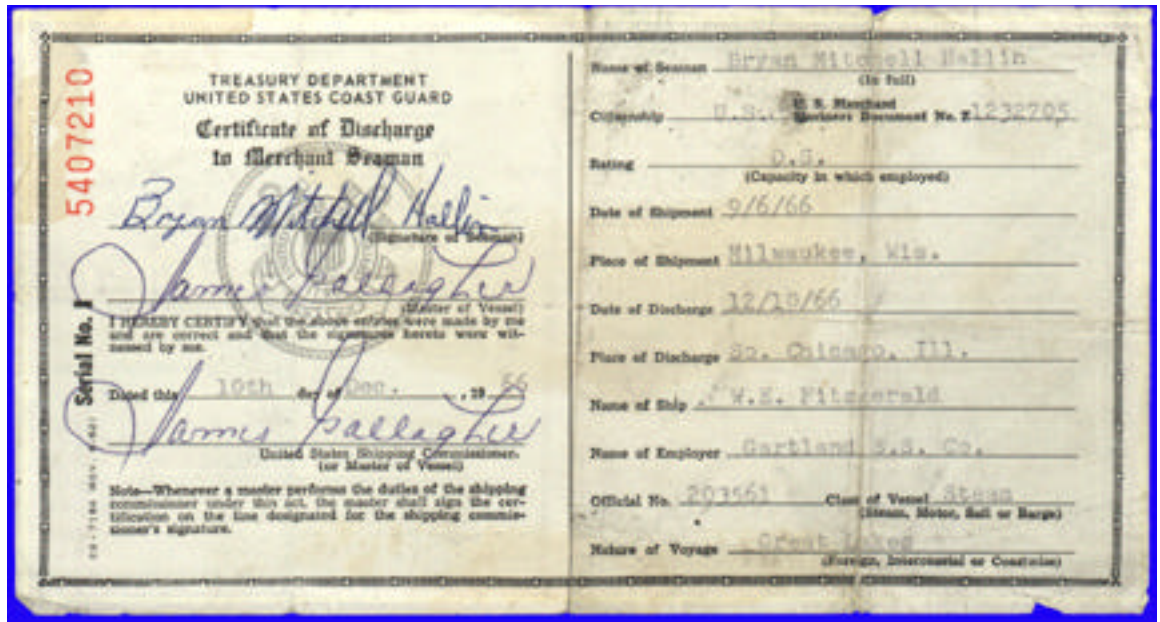 5407210
Serial No. I
TREASURY DEPARTMENT
UNITED STATES COAST GUARD
Certificate of Discharge
to Merchant Seaman
Bryan Mitchell Hallin
(Signature of Seaman)
James Gallagher
(Master of Vessel)
I HEREBY CERTIFY that the above entries were made by me
and are correct and that the signatures hereto were wit-
nessed by me.
Dated this 10th day of Dec. , 19 66
James Gallagher
United States Shipping Commissioner.
(or Master of Vessel)
Note—Whenever a master performs the duties of the shipping
commissioner under this act, the master shall sign the cer-
tification on the line designated for the shipping commis-
sioner's signature.
Name of Seaman Bryan Mitchell Hallin
(In full)
Citizenship U.S. U. S. Merchant
Mariners Document No. Z 1232705
Rating O.S.
(Capacity in which employed)
Date of Shipment 9/6/66
Place of Shipment Milwaukee, Wis.
Date of Discharge 12/10/66
Place of Discharge So. Chicago, Ill.
Name of Ship W.E. Fitzgerald
Name of Employer Gartland S.S. Co.
Official No. 203561 Class of Vessel Steam
(Steam, Motor, Sail or Barge)
Nature of Voyage Great Lakes
(Foreign, Intercoastal or Coastwise)